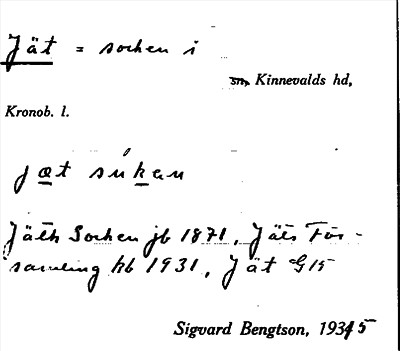 Jät = socken i
sn, Kinnevalds hd,
Kronob. l.
jæt súkan
Jäth Socken jb 1871, Jäts För-
samling kb 1931, Jät G15
Sigvard Bengtson, 1935